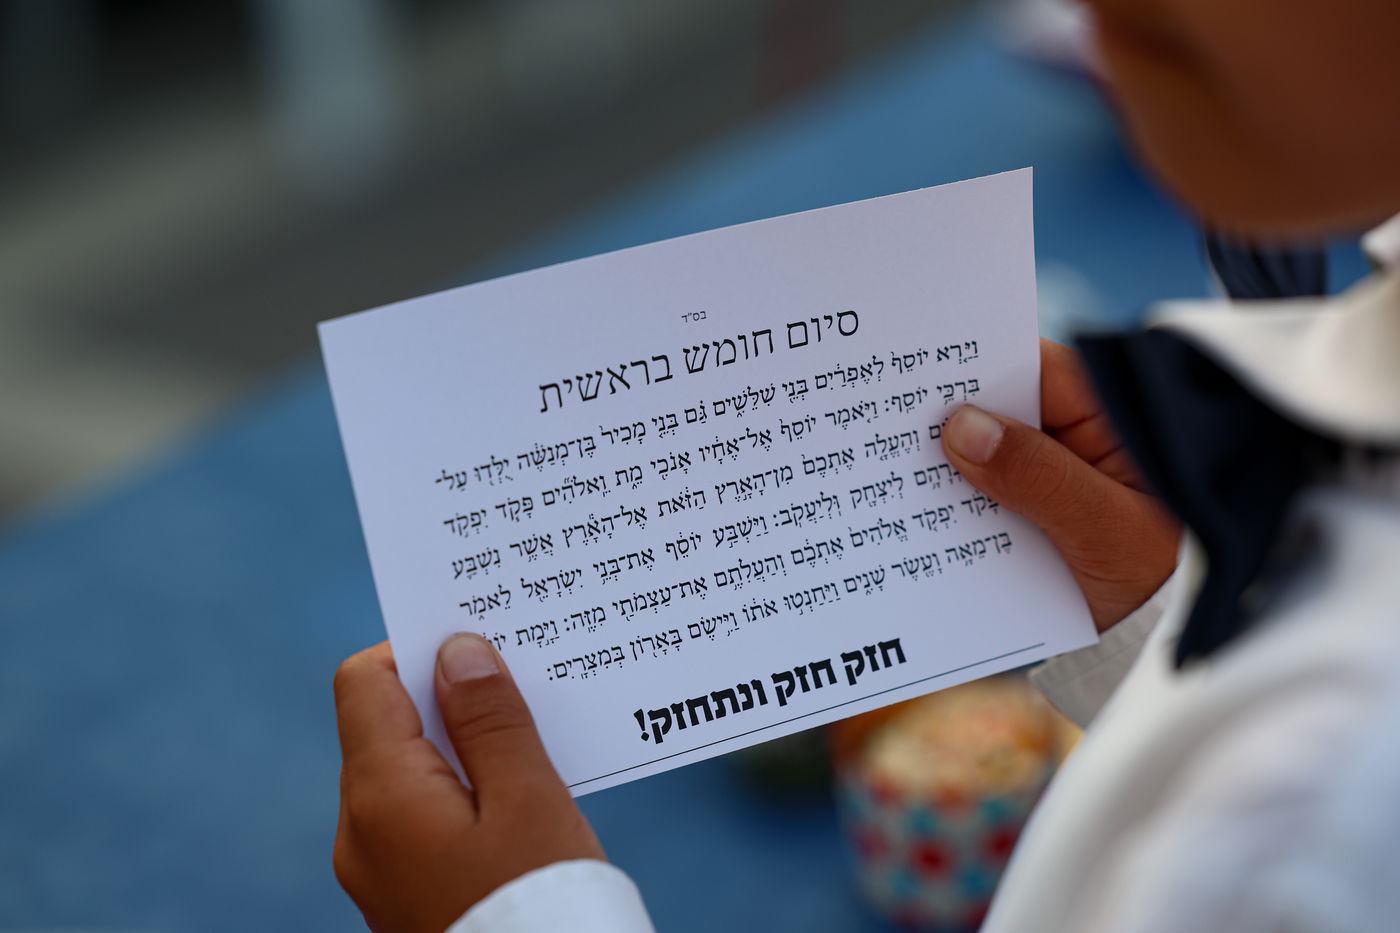 בס"ד
סיום חומש בראשית
וַיַּ֥רְא יוֹסֵ֛ף לְאֶפְרַ֖יִם בְּנֵ֣י שִׁלֵּשִׁ֑ים גַּ֗ם בְּנֵ֤י מָכִיר֙ בֶּן־מְנַשֶּׁ֔ה יֻלְּד֖וּ עַל־
בִּרְכֵּ֥י יוֹסֵֽף: וַיֹּ֤אמֶר יוֹסֵף֙ אֶל־אֶחָ֔יו אָנֹכִ֖י מֵ֑ת וֵֽאלֹהִ֞ים פָּקֹ֧ד יִפְקֹ֣ד
וְהֶעֱלָ֤ה אֶתְכֶם֙ מִן־הָאָ֣רֶץ הַזֹּ֔את אֶל־הָאָ֕רֶץ אֲשֶׁ֥ר נִשְׁבַּ֛ע
לְיִצְחָ֥ק וּֽלְיַעֲקֹֽב: וַיַּשְׁבַּ֣ע יוֹסֵ֔ף אֶת־בְּנֵ֥י יִשְׂרָאֵ֖ל לֵאמֹ֑ר
פָּקֹ֨ד יִפְקֹ֤ד אֱלֹהִים֙ אֶתְכֶ֔ם וְהַעֲלִתֶ֥ם אֶת־עַצְמֹתַ֖י מִזֶּֽה: וַיָּ֣מָת
בֶּן־מֵאָ֥ה וָעֶ֖שֶׂר שָׁנִ֑ים וַיַּחַנְט֣וּ אֹת֔וֹ וַיִּ֥ישֶׂם בָּאָר֖וֹן בְּמִצְרָֽיִם:
חזק חזק ונתחזק!